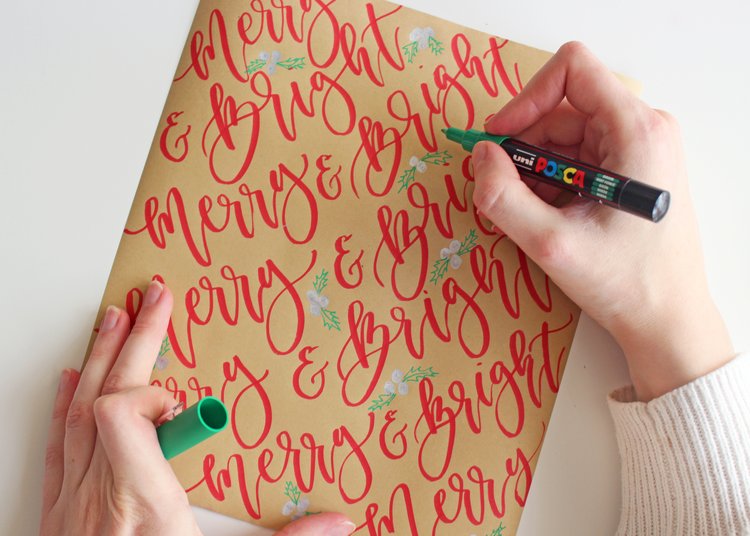 Merry
& Bright
Merry & Bright
Merry & Bright
Merry & Bright
Merry & Bright
Merry
uni POSCA